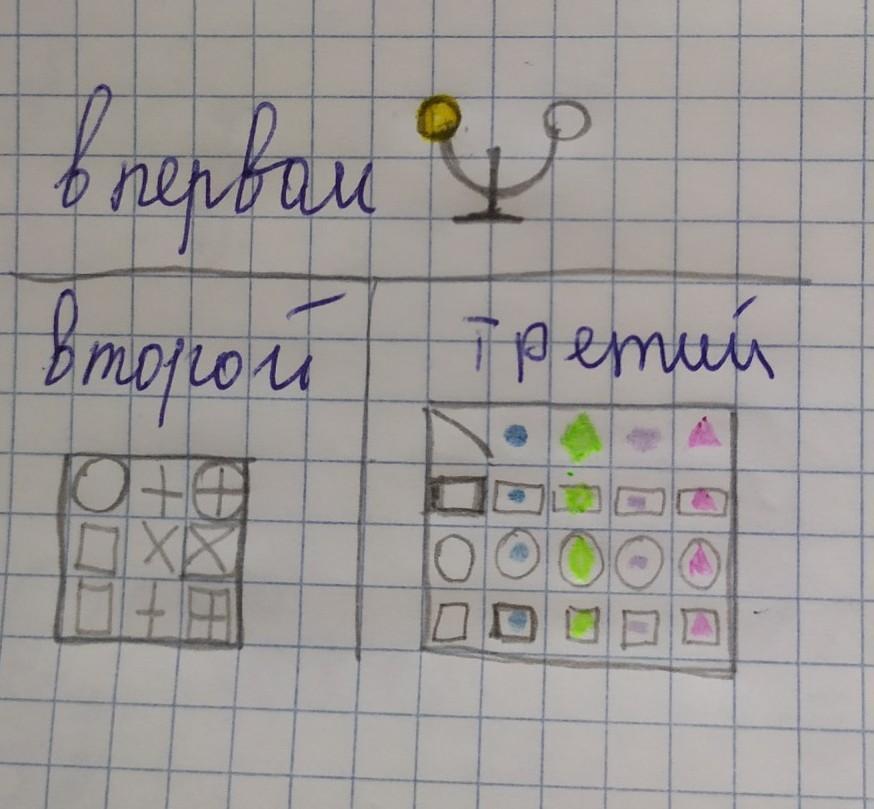 в первом
второй
третий